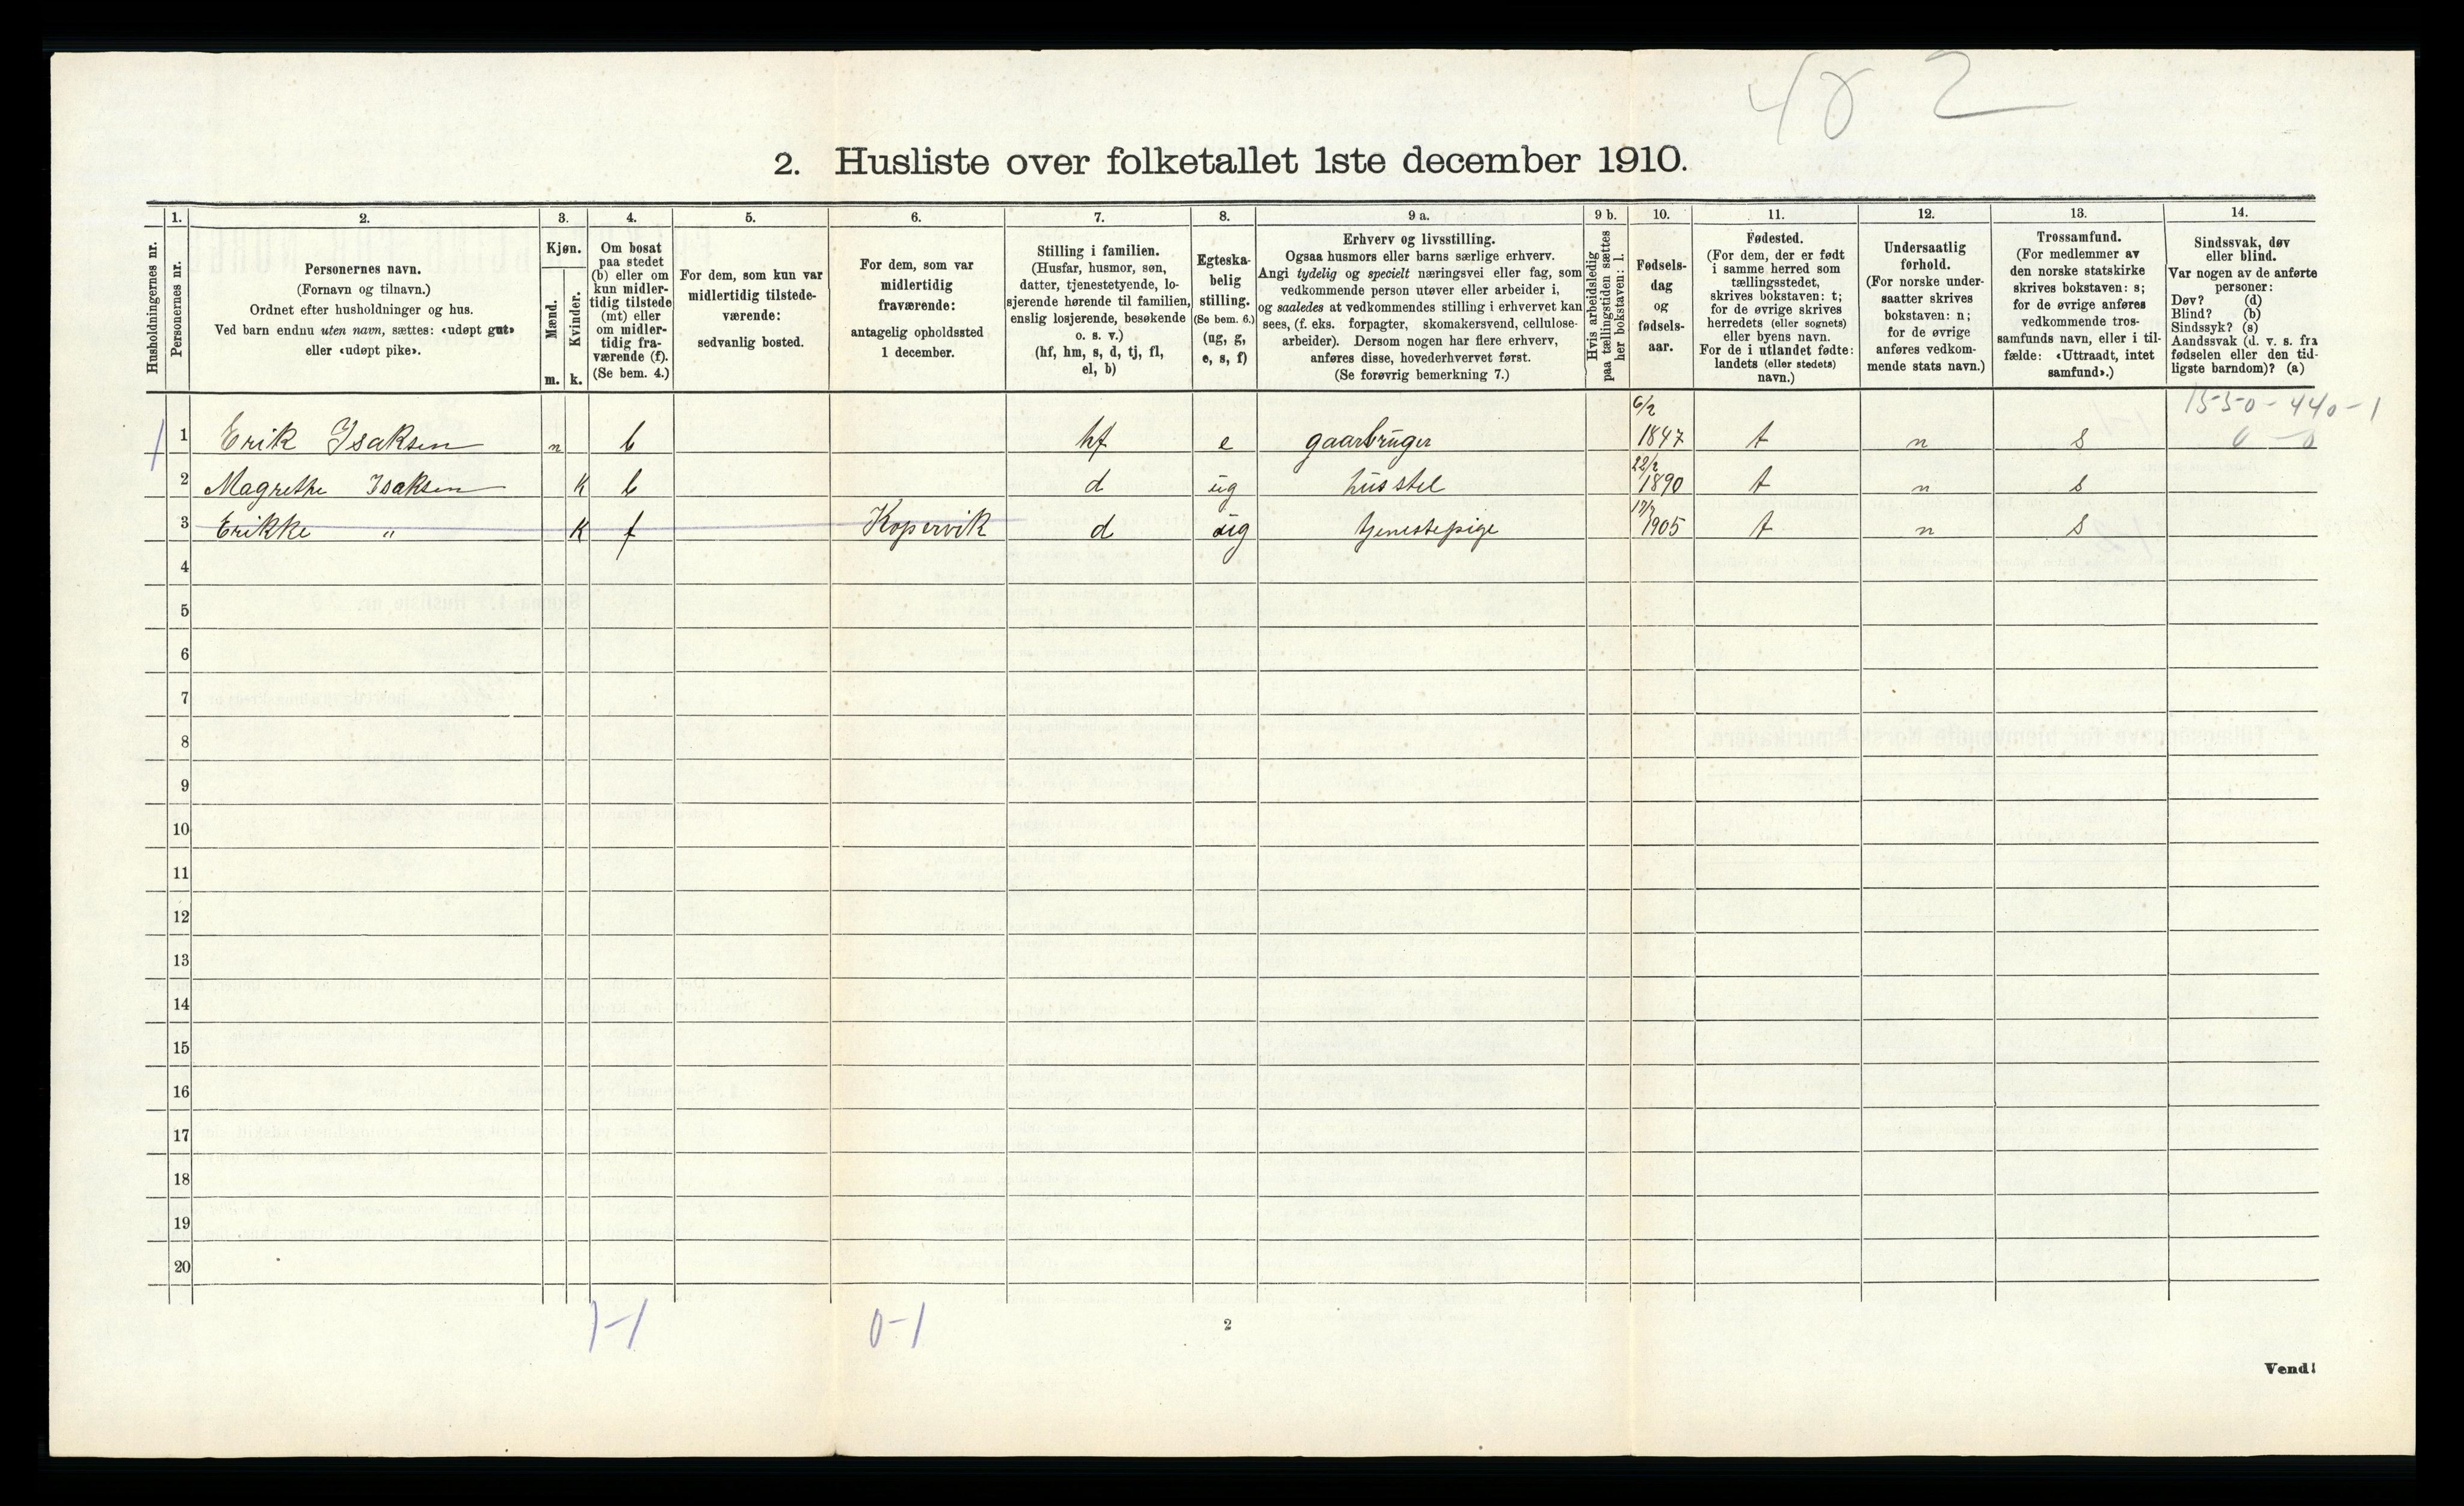 48 2
2. Husliste over folketallet 1ste december 1910.
Husholdningernes nr.
1. Personernes nr.
2. Personernes navn.
(Fornavn og tilnavn.)
Ordnet efter husholdninger og hus.
Ved barn endnu uten navn, sættes: «udøpt gut»
eller «udøpt pike».
3. Kjøn.
Mænd. m.
Kvinder. k.
4. Om bosat
paa stedet
(b) eller om
kun midler-
tidig tilstede
(mt) eller
om midler-
tidig fra-
værende (f).
(Se bem. 4.)
5. For dem, som kun var
midlertidig tilstede-
værende:
sedvanlig bosted.
6. For dem, som var
midlertidig
fraværende:
antagelig opholdssted
1 december.
7. Stilling i familien.
(Husfar, husmor, søn,
datter, tjenestetyende, lo-
sjerende hørende til familien,
enslig losjerende, besøkende
o. s. v.)
(hf, hm, s, d, tj, fl,
el, b)
8. Egteska-
belig
stilling.
(Se bem. 6.)
(ug, g,
e, s, f)
9 a. Erhverv og livsstilling.
Ogsaa husmors eller barns særlige erhverv.
Angi tydelig og specielt næringsvei eller fag, som
vedkommende person utøver eller arbeider i,
og saaledes at vedkommendes stilling i erhvervet kan
sees, (f. eks. forpagter, skomakersvend, cellulose-
arbeider). Dersom nogen har flere erhverv,
anføres disse, hovederhvervet først.
(Se forøvrig bemerkning 7.)
9 b. Hvis arbeidsledig
paa tællingstiden sættes
her bokstaven: l.
10. Fødsels-
dag
og
fødsels-
aar.
11. Fødested.
(For dem, der er født
i samme herred som
tællingsstedet,
skrives bokstaven: t;
for de øvrige skrives
herredets (eller sognets)
eller byens navn.
For de i utlandet fødte:
landets (eller stedets)
navn.)
12. Undersaatlig
forhold.
(For norske under-
saatter skrives
bokstaven: n;
for de øvrige
anføres vedkom-
mende stats navn.)
13. Trossamfund.
(For medlemmer av
den norske statskirke
skrives bokstaven: s;
for de øvrige anføres
vedkommende tros-
samfunds navn, eller i til-
fælde: «Uttraadt, intet
samfund».)
14. Sindssvak, døv
eller blind.
Var nogen av de anførte
personer:
Døv? (d)
Blind? (b)
Sindssyk? (s)
Aandssvak (d. v. s. fra
fødselen eller den tid-
ligste barndom)? (a)
1550-440-1
0 - 0
1 Erik Isaksen m b hf e gaarbruger 6/2 1847 t n s
2 Magrethe Isaksen k b d ug husstel 22/2 1890 t n s
3 Erikke " k f Kopervik d ug tjenestepige 1905 t n s
4
5
6
7
8
9
10
11
12
13
14
15
16
17
18
19
20
1-1
0-1
2
Vend!